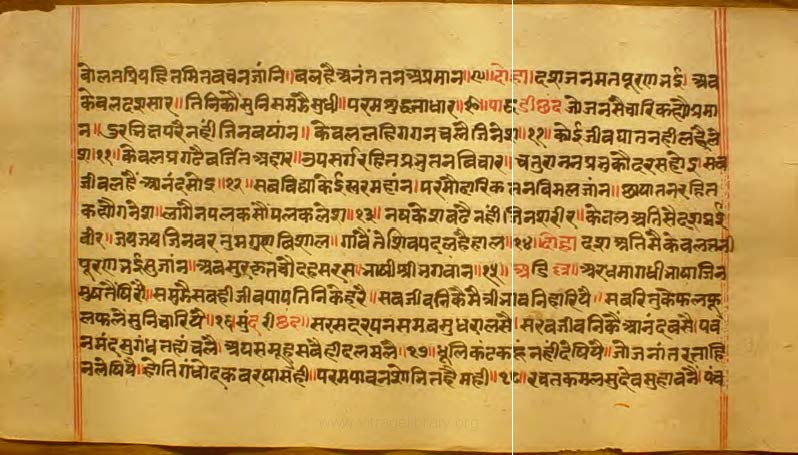 बोलत प्रिय हित मित वचन जांनि॥ बल है अनंत तन अप्रमान॥९॥ दोहा॥ दश जनमत पूरण भई। अब
केवल दश सार॥ तिनिकौं सुनि समझै सुधी॥ परम शुद्धताधार॥१०॥ पाद्धडी छंद जोजन सै चारि कह्यो प्रमा
न॥ दुरभिक्ष परै नहीं जिन वषांन॥ केवल लहि गगन चलै जिनेश॥११॥ कोई जीव घात नही लहै ले
श॥११॥ केवल प्रगटै वर्जित अहार॥ उपसर्ग रहित प्रभु तन विचार॥ चतुरानन प्रभु कौ दरस होइ। सब
जीव लहैं आनंद सोइ॥१२॥ सब विद्या के ईस्वर महांन॥ परमौदारिक तन विमल जांन॥ छाया तन रहित
कह्यौ गनेश॥ लागै न पलक सौं पलक लेश॥१३॥ नष केश बढै नहीं जिन शरीर॥ केवल अतिसै दश भई
वीर॥ जय जय जिनवर तुम गुण विशाल॥ गावैं ते शिवपद लहै हाल॥१४॥ दोहा दश अतिसै केवल तनी
पूरण भई सु जांन॥ अब सुरकृत चौदह सरस॥ भाषी श्री भगवांन॥१५॥ अडिल्ल॥ अरध मागधी भाषा जिन
मुष तैं षिरै॥ समझै सबही जीव पाप तिनिके हरै॥ सब जीवनि कै मैत्री भाव निहारियै॥ सब रितु के फल फू
ल फलै सु विचारियै॥१६॥ सुंदरी छंद॥ सरस दरपन सम वसुधरा लसै। सरव जीवनि कैं आनंद वसै। पव
न मंद सुगंध तहां चलै॥ अघ समूह सबै ही दलमलै॥१७॥ धूलि कंटक हूं नहीं देषियै॥ जोजनांतर ताहि
न लेषियै॥ होति गंधोदक वरषा सही॥ परम पावन शोभित है मही॥१८॥ रचत कमल सु देव सुहावनै। पंच
www.vitragelibrary.org